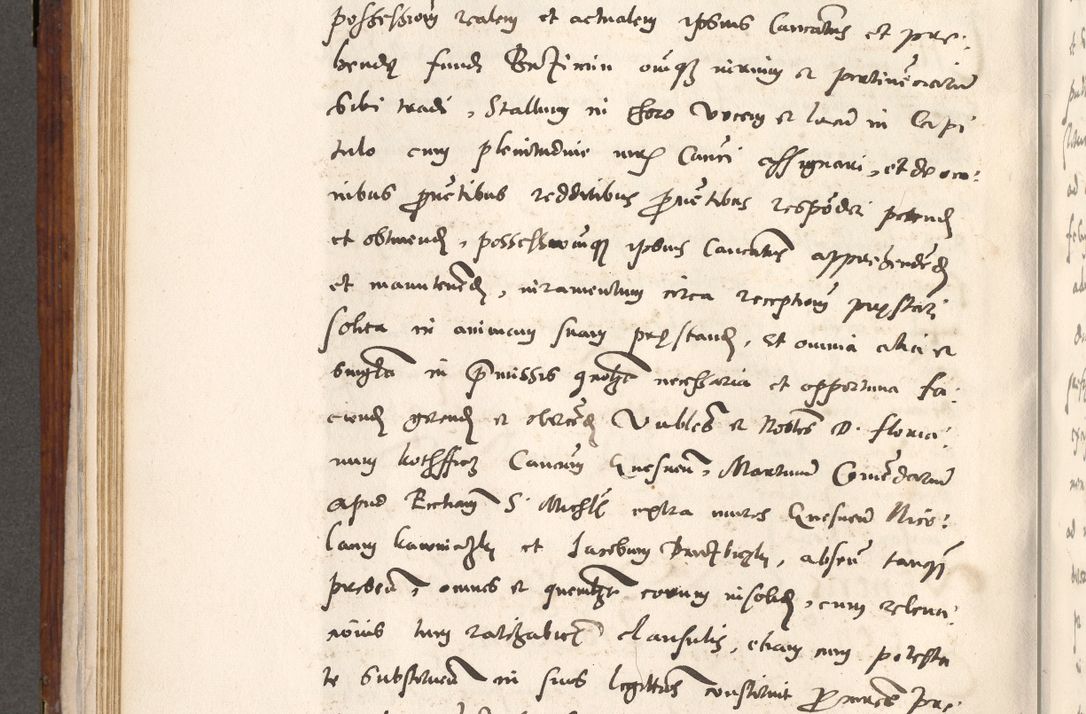 possessionem realem et actualem ipsius Canonicatus et pre:
bende fundi omniumque iurium et pertinenciarum
sibi tradi, Stallum in Choro Vocem et locum in Capi
tulo cum plenitudine iuris Canonici assignari, et de om:
nibus proventibus redditibus proventibus responderi petend
et obtinend, possessionemque ipsius Canonicatus apprehendend
et manutenend, iuramentum circa receptionem prestari
solita in animam suam prestand, Et omnia alia et
singula in premissis quomodolibet necessaria et opportuna fa:
ciend gerend et exercend Venerabiles et Nobiles D. Floria:
num Canonicum Gnesnen, Martinum Comendarium
apud Ecclesiam S. Michaelis extra muros Gnesnen Nico:
laum et Jacobum, absen tanquam
presen, omnes et quemlibet eorum insolid, cum releva:
tionis tum ratihabitionis clausulis, etiam cum potesta
te substituendi in suis legittimus constituit procuratores pre